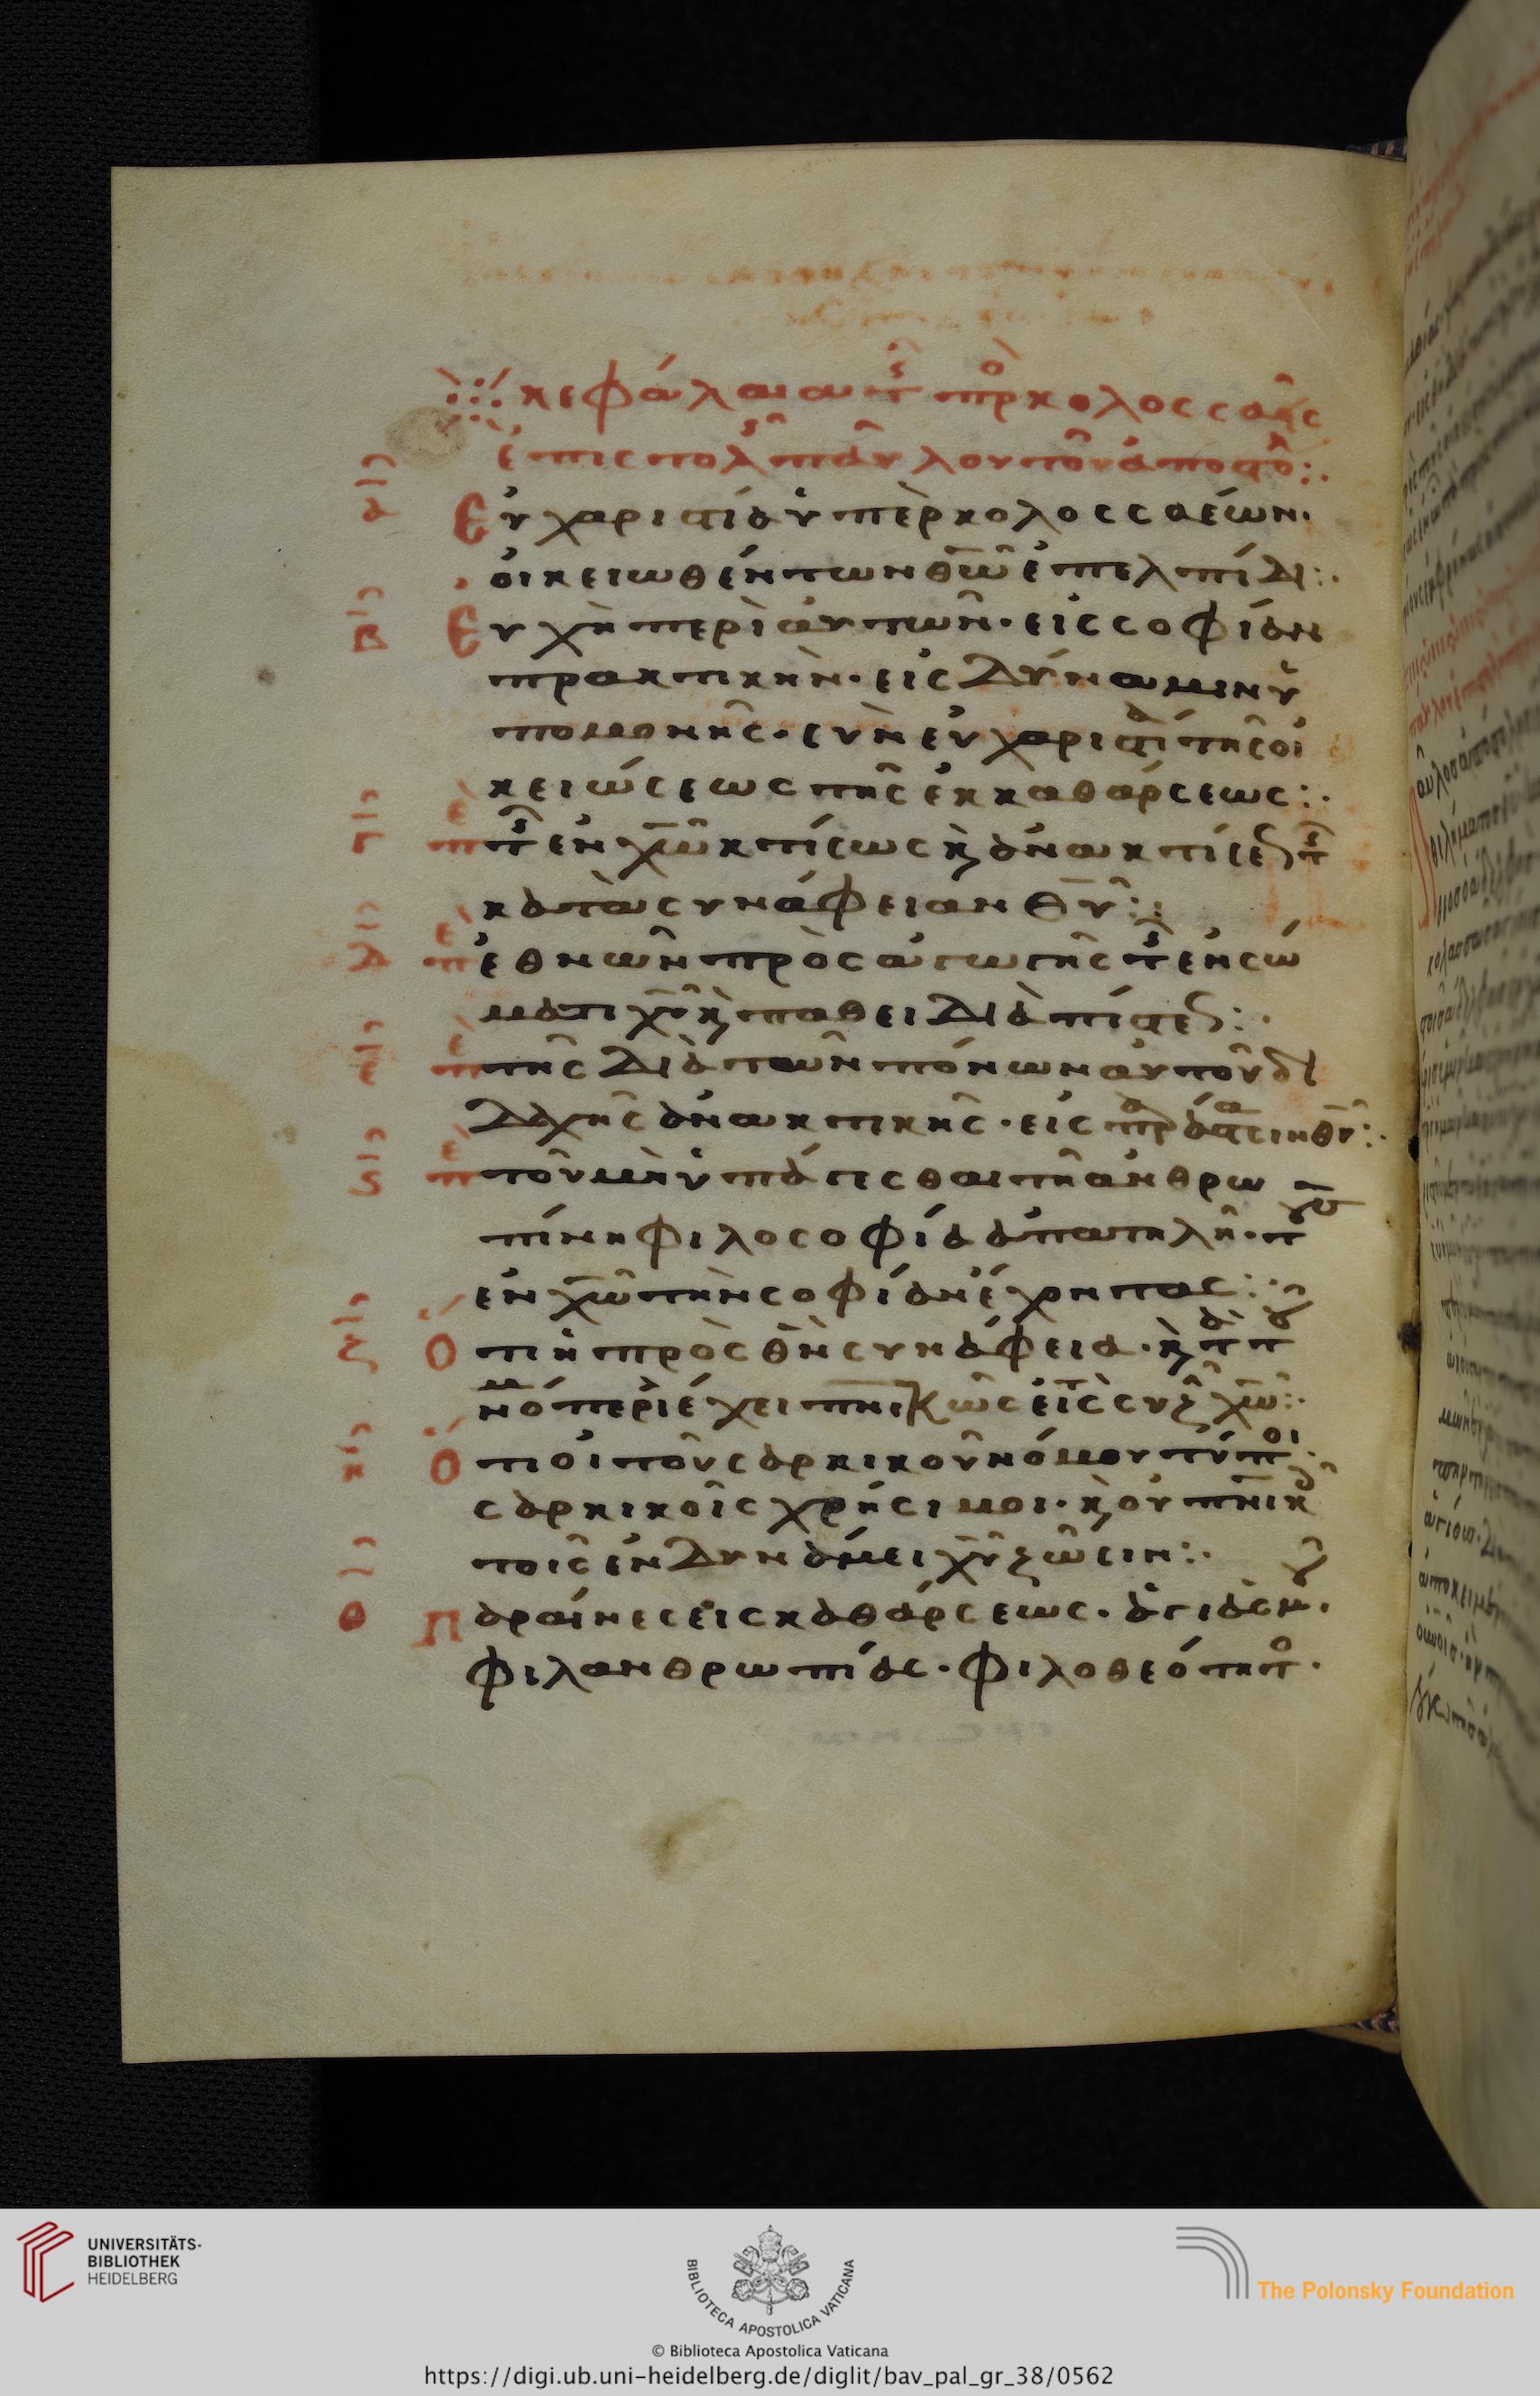 κεφάλαια τῆς πρὸς κολοσσαεῖς
ἐπιστολῆς παύλου τοῦ ἀποστό:.
α Εὐχαριστία ὑπὲρ κολοσσαέων·
οἰκειωθέντων θω ἐπ ἐλπίδι:.
β Εὐχὴ περὶ αὐτῶν· εἰς σοφίαν
πρακτικὴν· εἰς δύναμιν ὑ
πομονῆς· σὺν εὐχαριστία τῆς οἰ
κειώσεως τῆς ἐκ καθάρσεως:.
γ πε τῆς ἐν χω κτίσεως κ ἀνακτίσεως τῆς
κατὰ συνάφειαν θυ:.
δ πε ἐθνῶν προσαγωγῆς τῆς ἐν σώ
ματι χυ κ πάθει διὰ πίστεως:.
ε πε τῆς διὰ τῶν πόνων αὐτοῦ δι
δαχῆς ἀνακτικῆς· εἰς παράστασιν θυ:.
ϛ πε τοῦ μὴ ὑπάγεσθαι τῆ ἀνθρω
πίνη φιλοσοφία ἀπατηλῆ· τοὺς
ἐν χω τὴν σοφίαν ἔχοντας:.
ζ Ὅτι ἡ πρὸς θν συνάφεια· κ τὰ τοῦ
νόμου περιέχει πνικῶς εἰς τὸ συζ χω:.
η Ὅτι οἱ τοῦ σαρκικοῦ νόμου τύποι·
σαρκικοῖς χρήσιμοι· κ οὐ πνικοῖς
τοῖς ἐν δυνάμει χυ ζῶσιν:.
θ Παραίνεσις καθάρσεως· ἁγιασμοῦ·
φιλανθρωπίας· φιλοθεότητος·
UNIVERSITÄTS-
BIBLIOTHEK
HEIDELBERG
BIBLIOTECA APOSTOLICA VATICANA
The Polonsky Foundation
© Biblioteca Apostolica Vaticana
https://digi.ub.uni-heidelberg.de/diglit/bav_pal_gr_38/0562